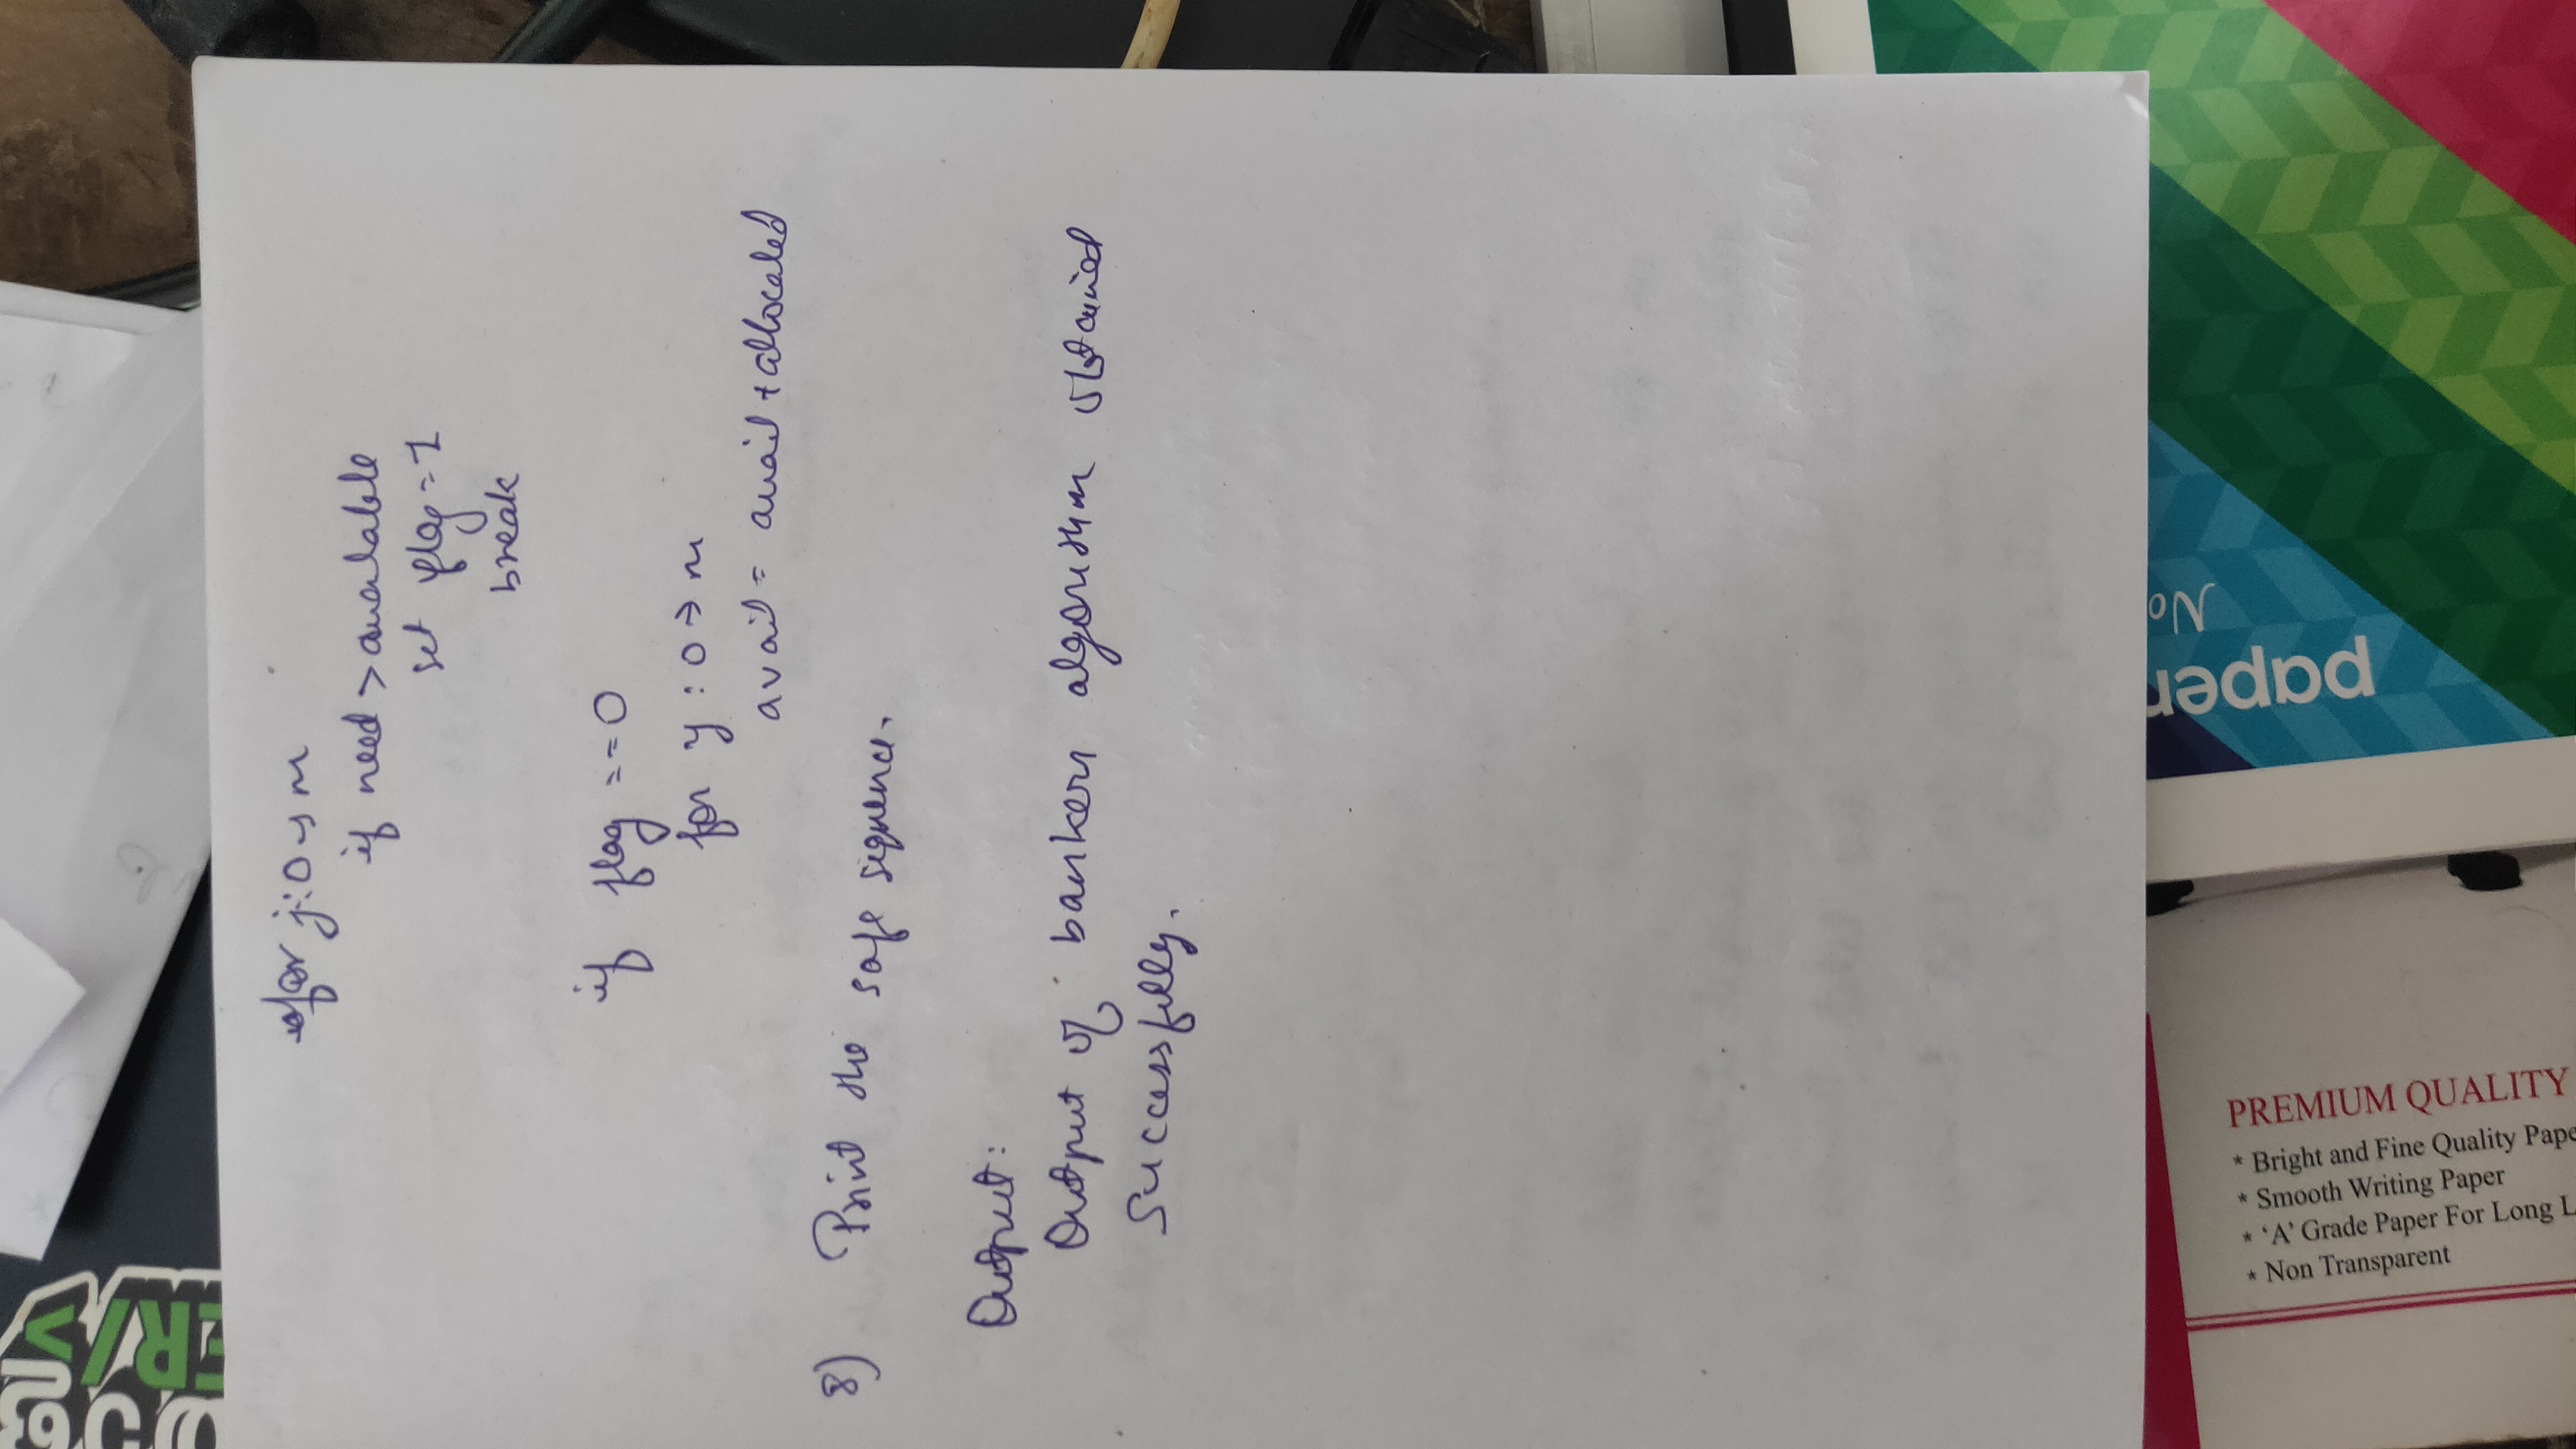 for j:0→m
if need > available
set flag=1
break
if flag ==0
for y:0→m
avail= avail+allocated
8) Print the safe sequence.
Output:
Output of bankers algorithm obtained
Successfully.
paper
No
PREMIUM QUALITY
* Bright and Fine Quality Pape
* Smooth Writing Paper
* 'A' Grade Paper For Long L
* Non Transparent
ER/